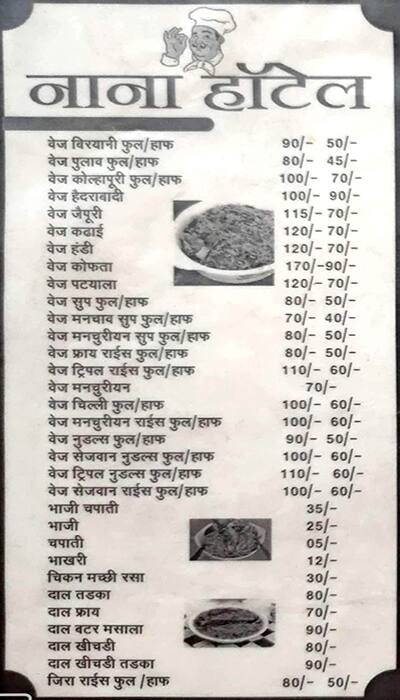 नाना हॉटेल
वेज बिरयानी फुल/हाफ 90/- 50/-
वेज पुलाव फुल/हाफ 80/- 45/-
वेज कोल्हापूरी फुल/हाफ 100/- 70/-
वेज हैदराबादी 100/- 90/-
वेज जैपूरी 115/- 70/-
वेज कढाई 120/- 70/-
वेज हंडी 120/- 70/-
वेज कोफता 170/-90/-
वेज पटयाला 120/- 70/-
वेज सुप फुल/हाफ 80/- 50/-
वेज मनचाव सुप फुल/हाफ 70/- 40/-
वेज मनचुरीयन सुप फुल/हाफ 80/- 50/-
वेज फ्राय राईस फुल/हाफ 80/- 50/-
वेज ट्रिपल राईस फुल/हाफ 110/- 60/-
वेज मनचुरीयन 70/-
वेज चिल्ली फुल/हाफ 100/- 60/-
वेज मनचुरीयन राईस फुल/हाफ 100/- 60/-
वेज नुडल्स फुल/हाफ 90/- 50/-
वेज सेजवान नुडल्स फुल/हाफ 100/- 60/-
वेज ट्रिपल नुडल्स फुल/हाफ 110/- 60/-
वेज सेजवान राईस फुल/हाफ 100/- 60/-
भाजी चपाती 35/-
भाजी 25/-
चपाती 05/-
भाखरी 12/-
चिकन मच्छी रसा 30/-
दाल तडका 80/-
दाल फ्राय 70/-
दाल बटर मसाला 90/-
दाल खीचडी 80/-
दाल खीचडी तडका 90/-
जिरा राईस फुल /हाफ 80/- 50/-